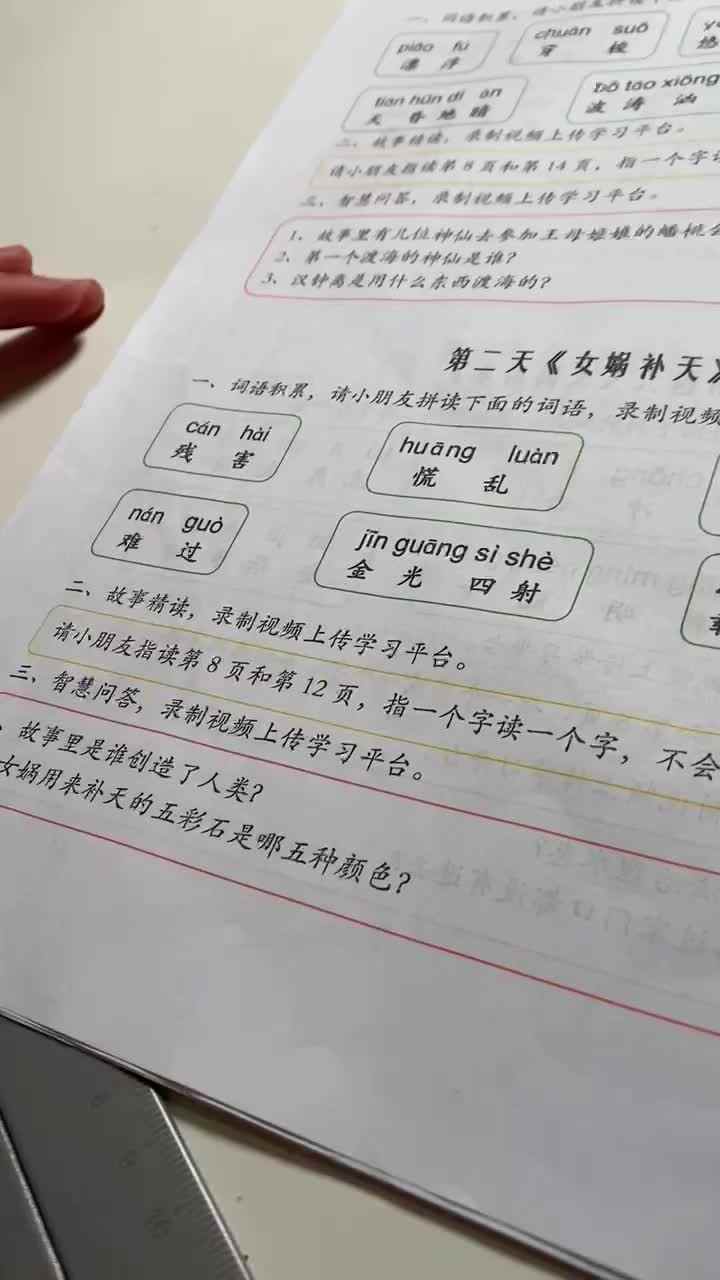 一、词语积累，请小朋友拼读下
piāo fú chuān suō
漂 浮 穿 梭
tiān hūn dì àn Bō tāo xiōng
天 昏 地 暗 波 涛 汹
二、故事精读，录制视频上传学习平台。
请小朋友指读第 8 页和第 14 页，指一个字
三、智慧问答，录制视频上传学习平台。
1、故事里有几位神仙去参加王母娘娘的蟠桃会
2、第一个渡海的神仙是谁？
3、汉钟离是用什么东西渡海的？
第二天《女娲补天》
一、词语积累，请小朋友拼读下面的词语，录制视频
cán hài huāng luàn
残 害 慌 乱
nán guò jīn guāng sì shè
难 过 金 光 四 射
二、故事精读，录制视频上传学习平台。
请小朋友指读第 8 页和第 12 页，指一个字读一个字，不会
三、智慧问答，录制视频上传学习平台。
、故事里是谁创造了人类？
女娲用来补天的五彩石是哪五种颜色？